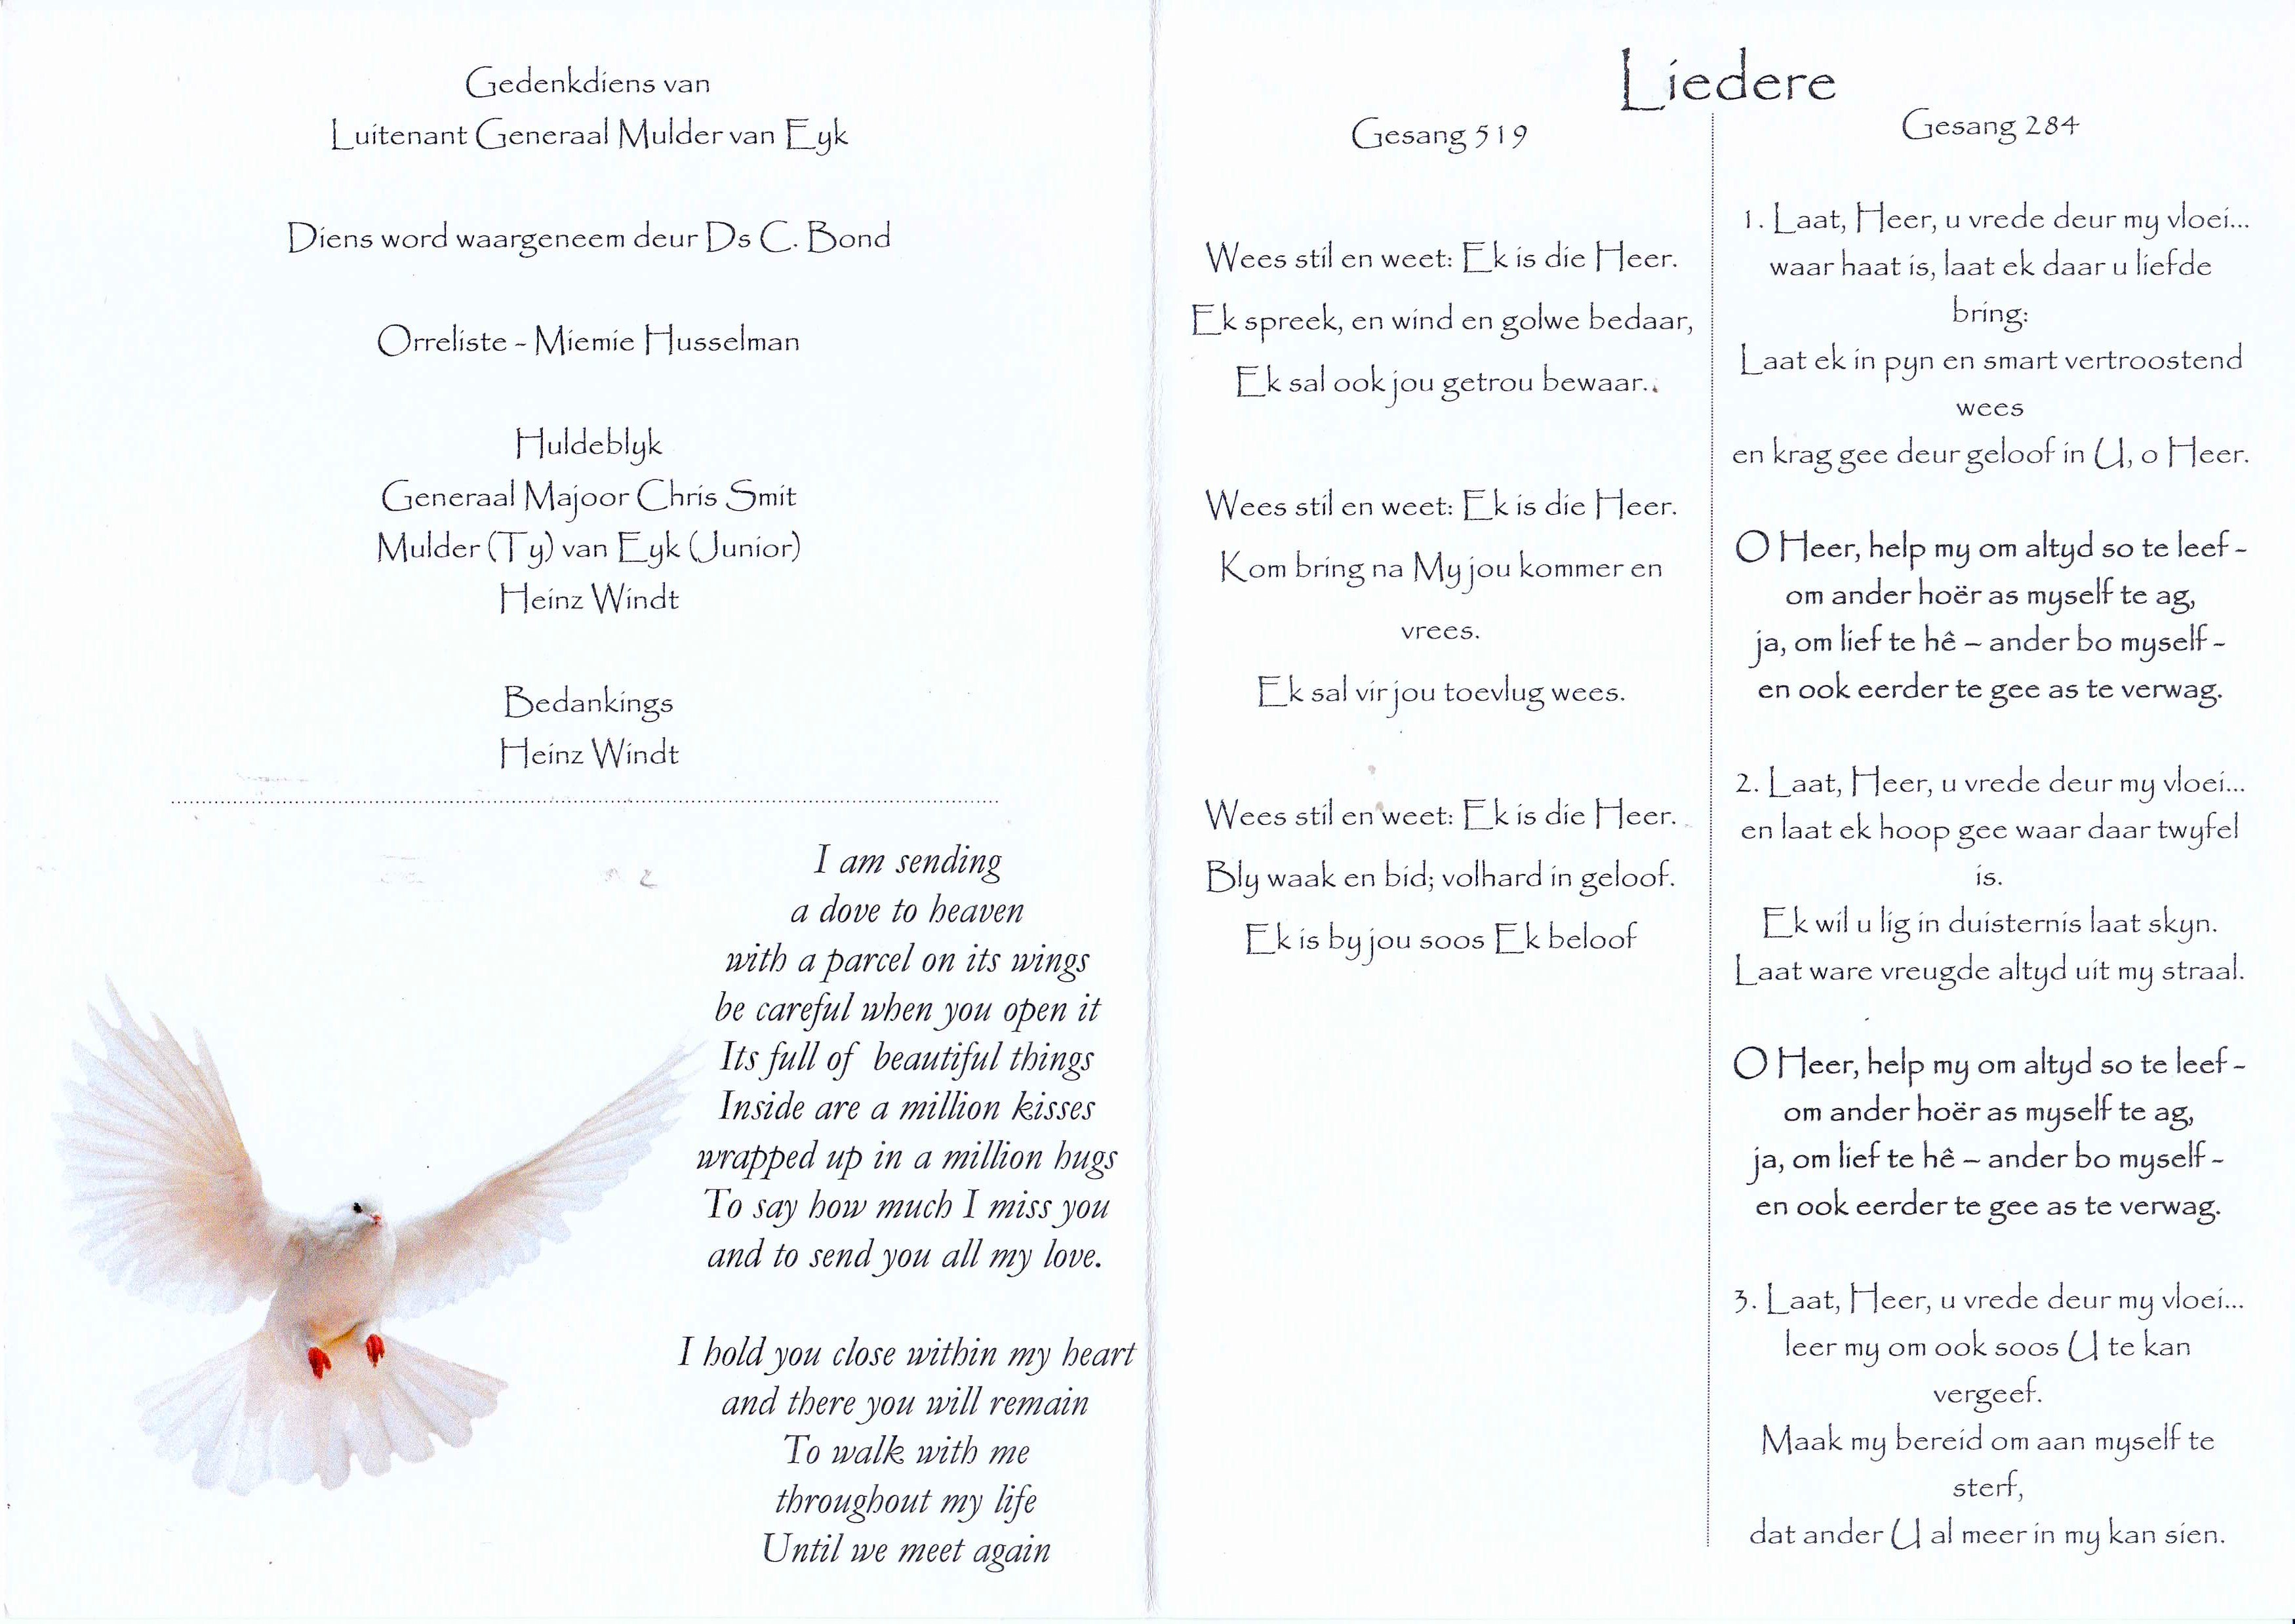 Gedenkdiens van
Luitenant Generaal Mulder van Eyk
Diens word waargeneem deur Ds C. Bond
Orreliste - Miemie Husselman
Huldeblyk
Generaal Majoor Chris Smit
Mulder (Ty) van Eyk (Junior)
Heinz Windt
Bedankings
Heinz Windt
I am sending
a dove to heaven
with a parcel on its wings
be careful when you open it
Its full of beautiful things
Inside are a million kisses
wrapped up in a million hugs
To say how much I miss you
and to send you all my love.
I hold you close within my heart
and there you will remain
To walk with me
throughout my life
Until we meet again
Liedere
Gesang 519
Wees stil en weet: Ek is die Heer.
Ek spreek, en wind en golwe bedaar,
Ek sal ook jou getrou bewaar..
Wees stil en weet: Ek is die Heer.
Kom bring na My jou kommer en
vrees.
Ek sal vir jou toevlug wees.
Wees stil en weet: Ek is die Heer.
Bly waak en bid; volhard in geloof.
Ek is by jou soos Ek beloof
Gesang 284
1. Laat, Heer, u vrede deur my vloei...
waar haat is, laat ek daar u liefde
bring:
Laat ek in pyn en smart vertroostend
wees
en krag gee deur geloof in U, o Heer.
O Heer, help my om altyd so te leef -
om ander hoër as myself te ag,
ja, om lief te hê – ander bo myself -
en ook eerder te gee as te verwag.
2. Laat, Heer, u vrede deur my vloei...
en laat ek hoop gee waar daar twyfel
is.
Ek wil u lig in duisternis laat skyn.
Laat ware vreugde altyd uit my straal.
O Heer, help my om altyd so te leef -
om ander hoër as myself te ag,
ja, om lief te hê – ander bo myself -
en ook eerder te gee as te verwag.
3. Laat, Heer, u vrede deur my vloei...
leer my om ook soos U te kan
vergeef.
Maak my bereid om aan myself te
sterf,
dat ander U al meer in my kan sien.